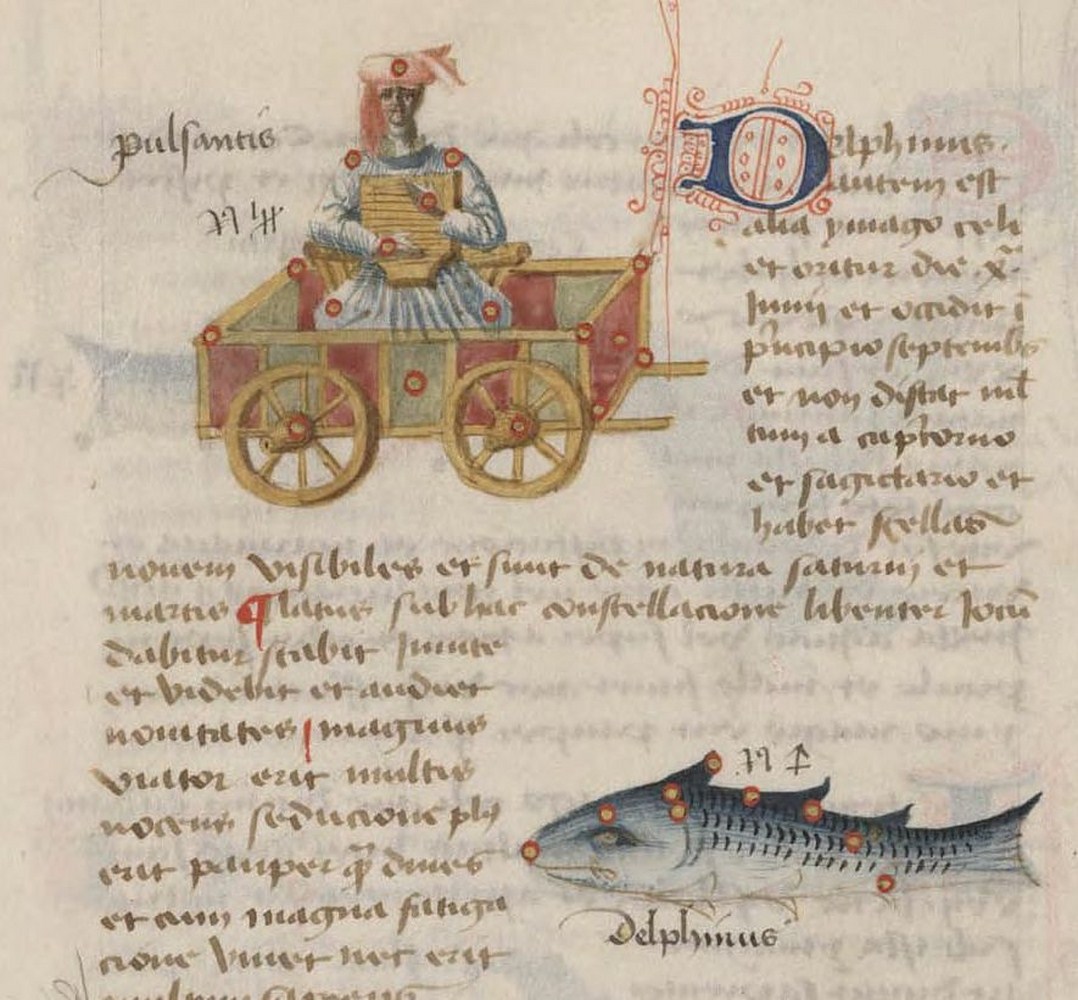 pulsantis
Delphinus.
autem est
alia ymago celi
et oritur die .x.
Junij et occidit i
pricipio septembris
et non distat mul
tum a capricorno
et sagittario et
habet stellas
nouem visibiles et sunt de natura saturni et
martis ¶ Natus sub hac constellacione libenter Jocu
dabitur scabit iuuite
et videbit et audiet
nouitates magnus
viator erit multis
nocens seducione plus
erit pauper q̃ diues
et cum magna fatiga
cione viuet nec erit
Delphinus